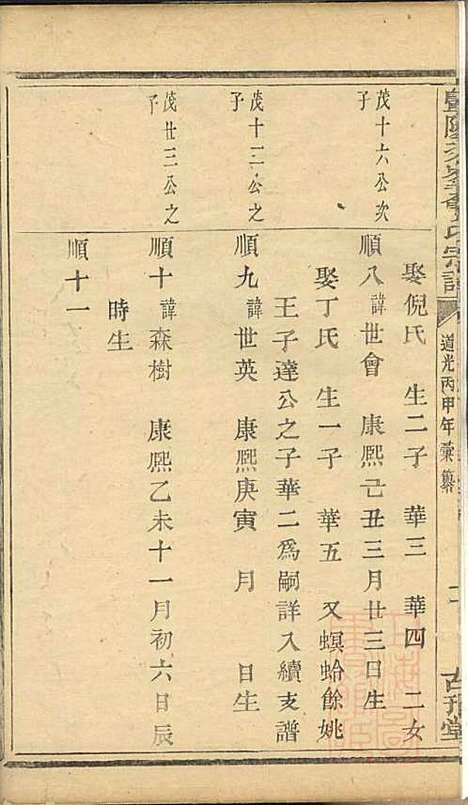 道光丙申年彙纂
娶倪氏 生二子 華三 華四 二女
茂十六公次子
順八 諱世會 康熙己丑三月廿三日生
娶丁氏 生一子 華五 又螟蛉餘姚
王子達公之子華二爲嗣詳入續支譜
茂十二公之子
順九 諱世英 康熙庚寅 月 日生
茂廿三公之子
順十 諱森樹 康熙乙未十一月初六日辰
時生
順十一